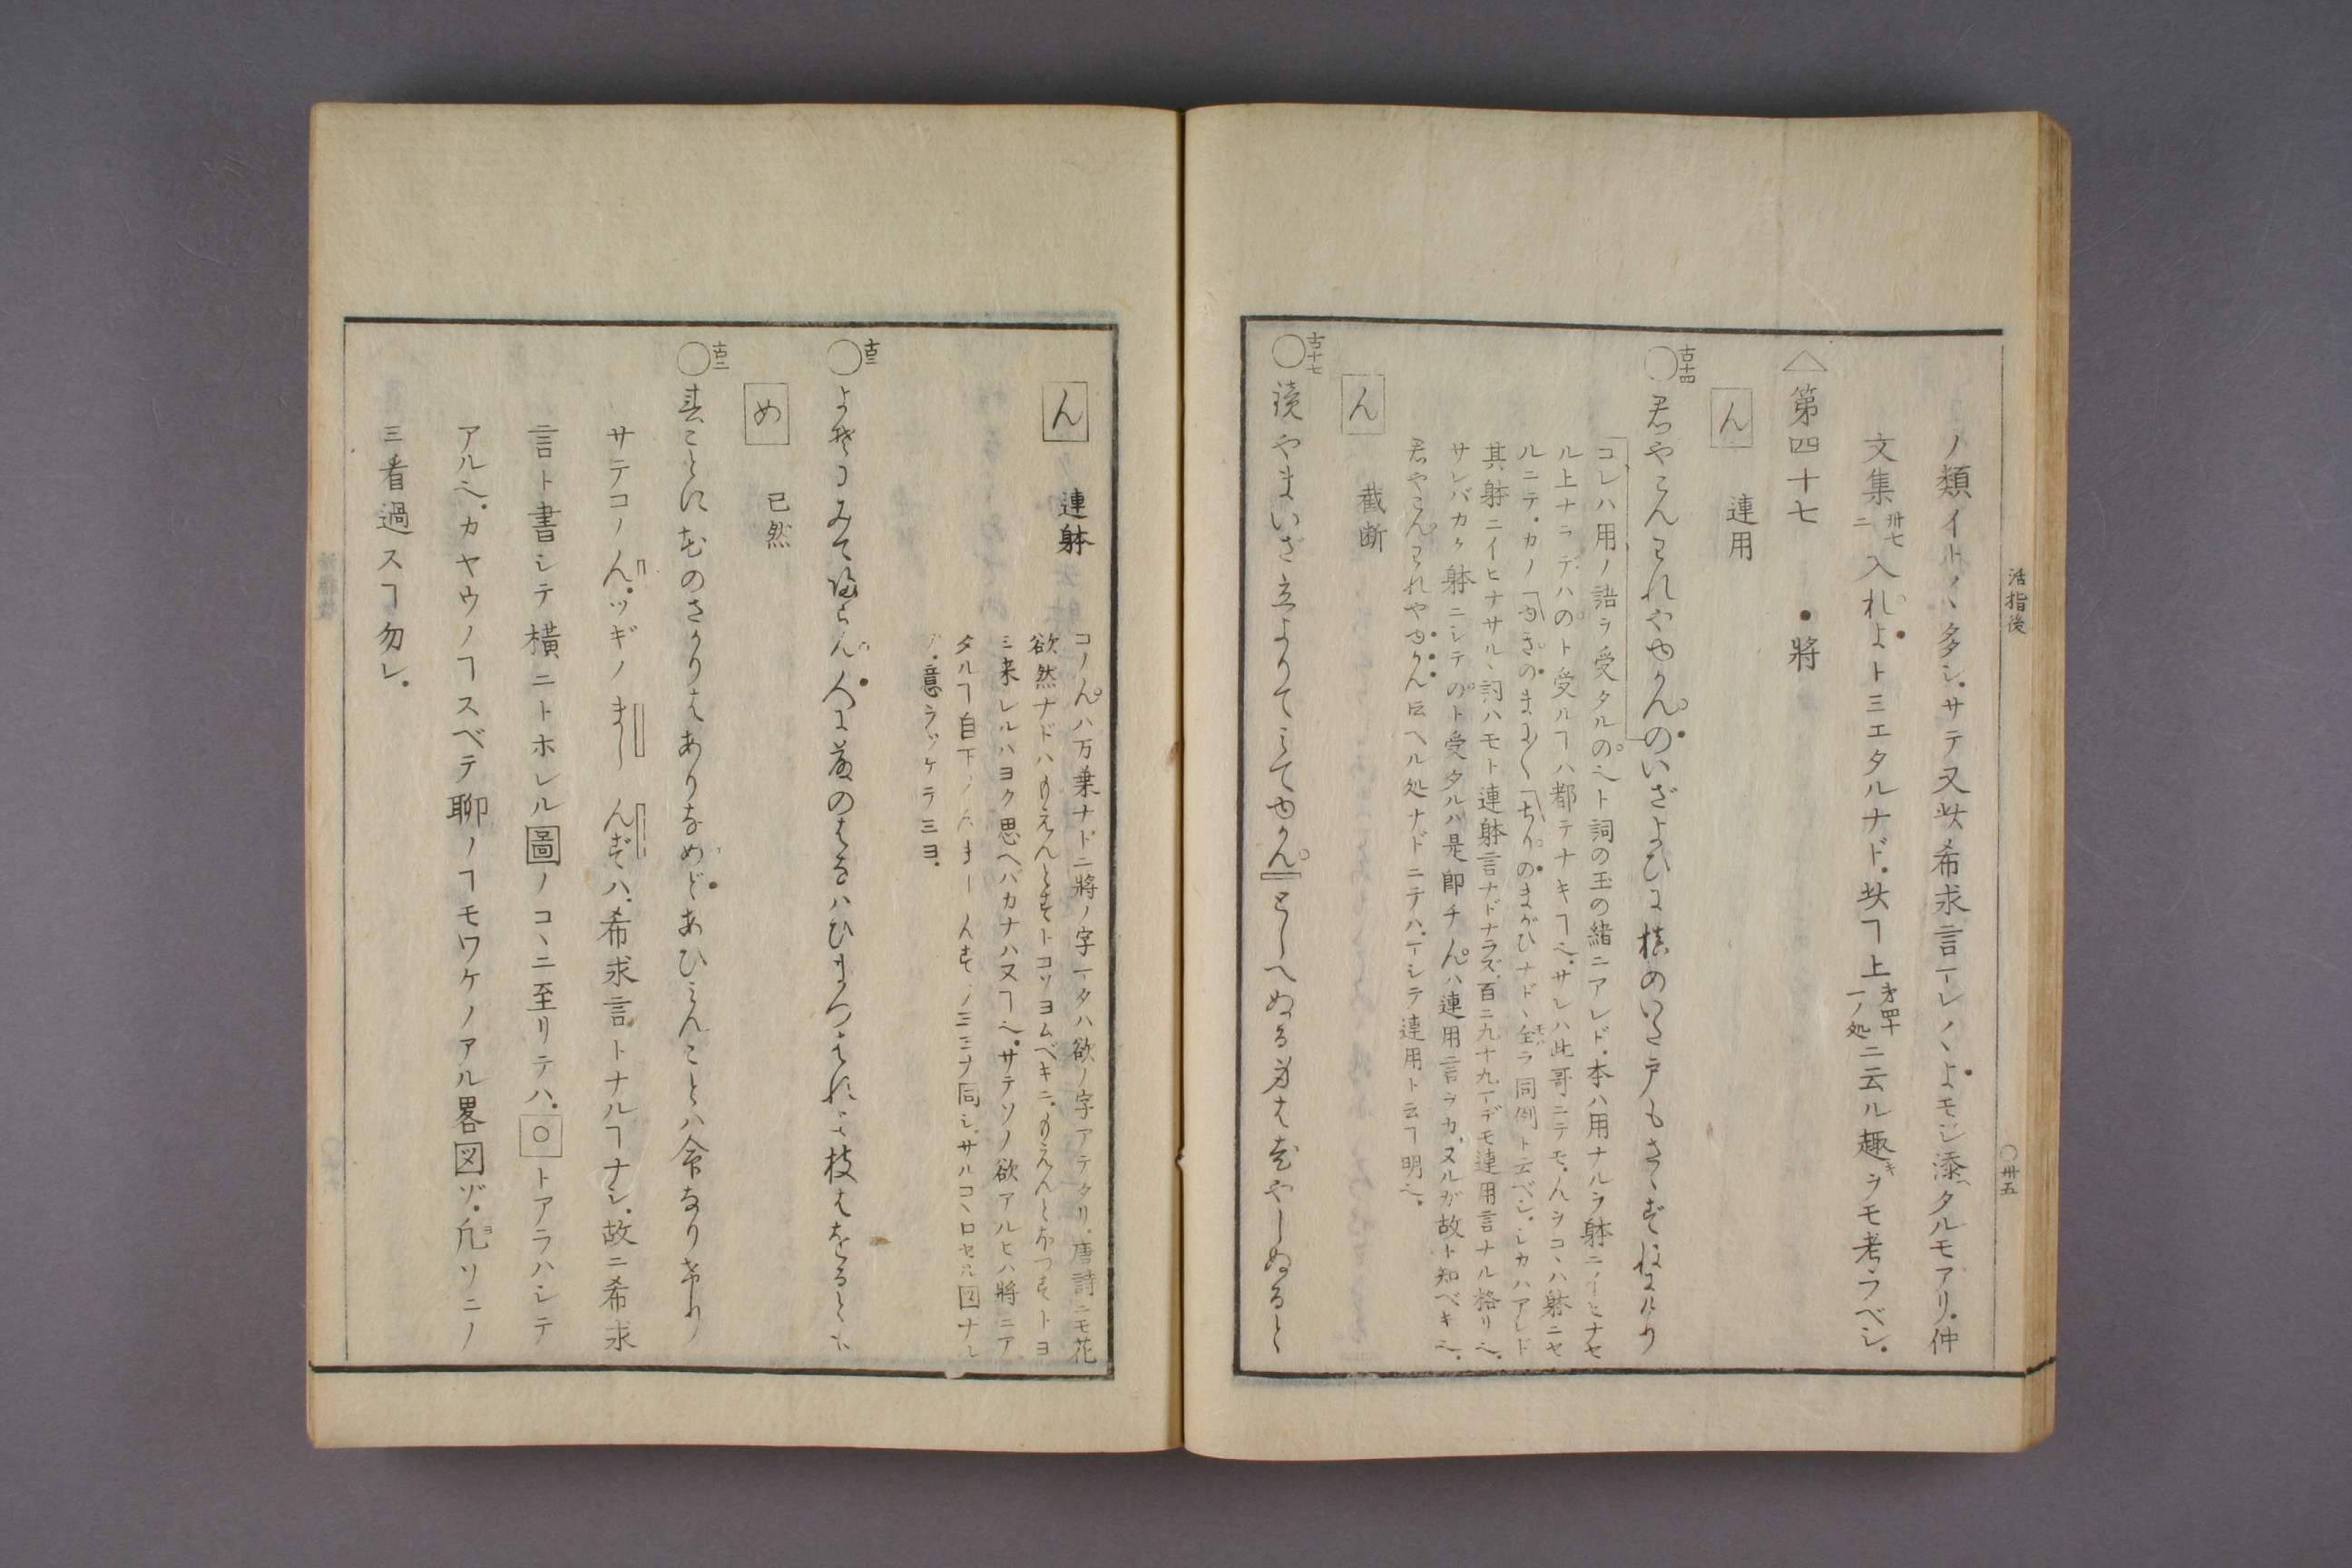 活指後
〇卅五
ノ類イトノヽ多シ.サテ又此希求言ーレノヽよモジ添ヘタルモアリ.仲
文集卅七ニ入れよトミエタルナド.此ヿ上才四十一ノ処ニ云ル趣キヲモ考ラベシ.
△第四十七 ●將
ん 連用
古十四
〇君やこんわれやゆかんのいざよひに槙のいた戸もさゝずねにけり
コレハ用ノ語ヲ受タルの也ト詞の玉の緒ニアレド.本ハ用ナルヲ躰ニイヒナセ
ル上ナラデハのト受ルヿハ都テナキヿ也.サレハ此哥ニテモ.んヲコヽハ躰ニセ
ルニテ.カノ「ゆきのまに〱「ちりのまがひナドヽ全ラ同例ト云ベシ.シカハアレド
其躰ニイヒナサルヽ詞ハモト連躰言ナドナラズ.百ニ九十九ーデモ連用言ナル格リ也.
サレバカク躰ニシテのト受タルハ是卽チんハ連用言ヲカヌルガ故ト知ベキ也.
君やこんわれやゆかん云ヘル処ナドニテハ.ーシテ連用ト云ヿ明也.
ん 截断
古十七
〇鏡やまいざ立よりてみてゆかんとしへぬる身は老やしぬると
ん 連躰
コノんハ万葉ナドニ將ノ字ータハ欲ノ字アテタリ.唐詩ニモ花
欲然ナドハもえんとすトコソヨムベキニ.もえんとほつすトヨ
ミ来レルハヨク思ヘバカナハヌヿ也.サテソノ欲アルヒハ將ニア
タルヿ自下ノんましんずノ三ミナ同シ.サルコヽロセル図ナレ
バ.意ヲツケテ三ヨ.
古二
〇よそにみて帰らん人に藤のはなはひまつはれよ枝はをるとも
め 已然
古二
〇春ことに花のさかりはありなめどあひみんことハ命なりけり
サテコノん.ツギノまし んずハ.希求言トナルヿナシ.故ニ希求
言ト書シテ横ニトホレル圖ノコヽニ至リテハ.〇トアラハシテ
アル也.カヤウノヿスベテ聊ノヿモワケノアル畧図ゾ.凡ソニノ
三看過スヿ勿レ.